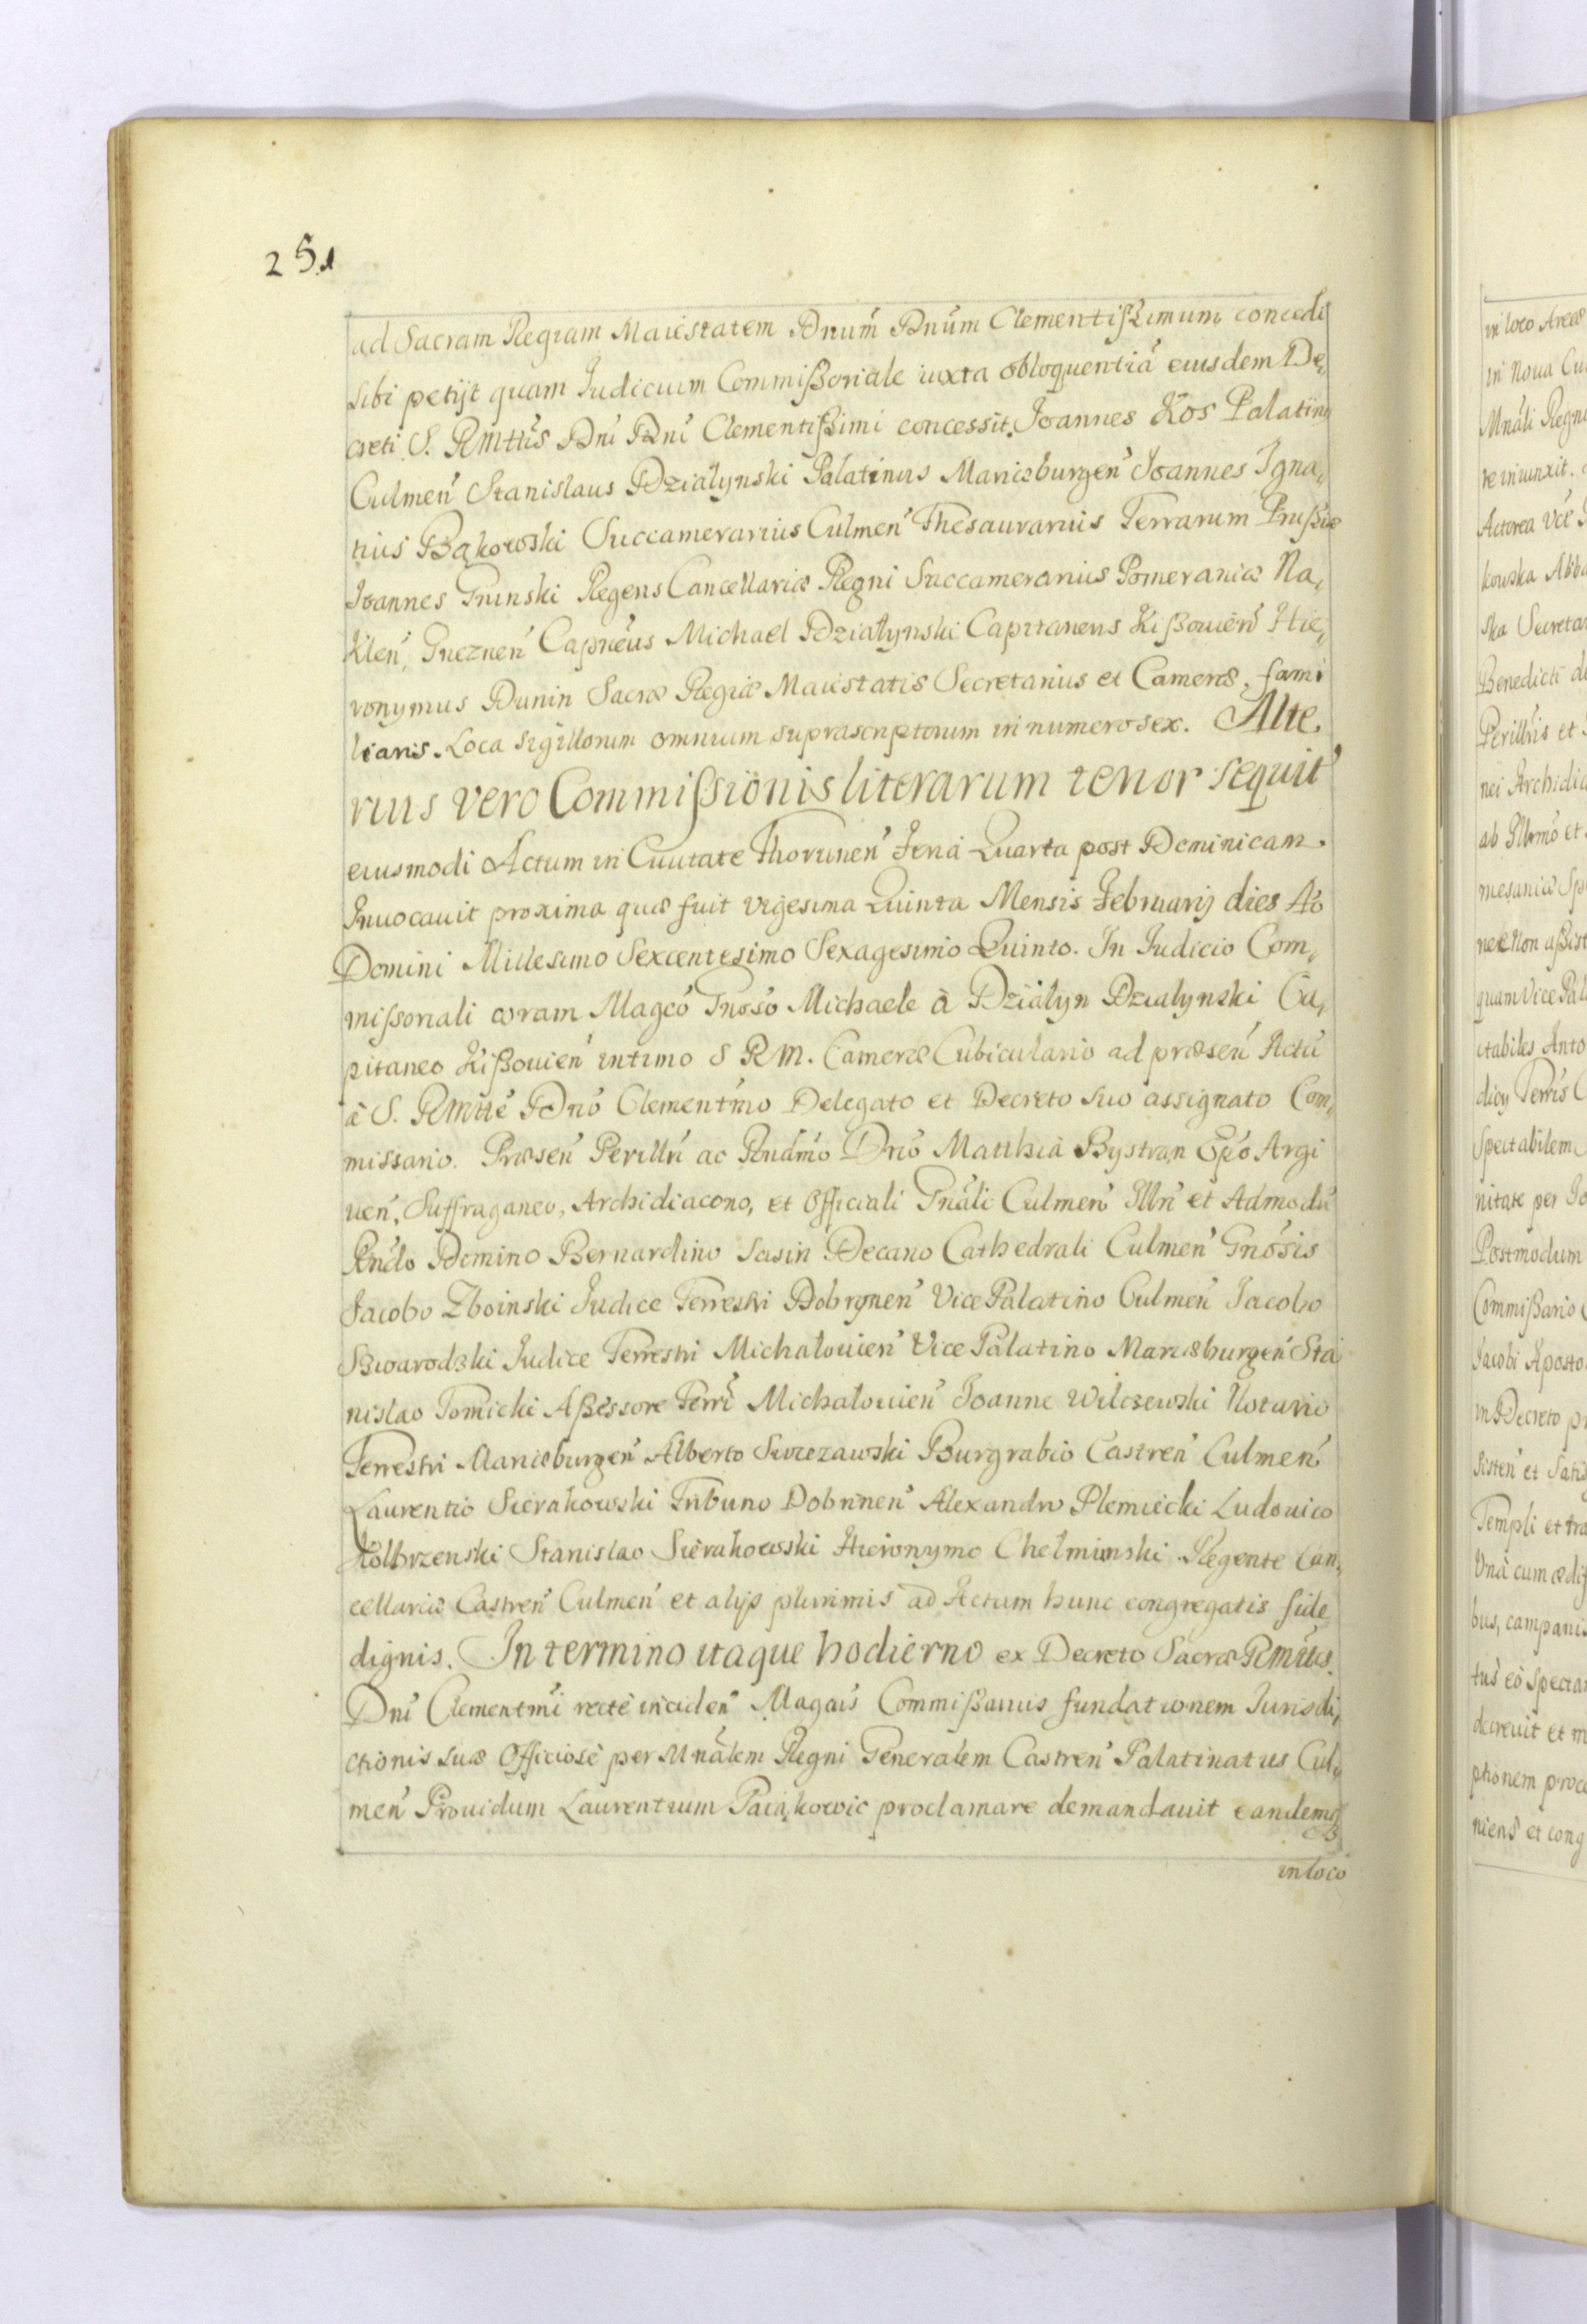 251
ad Sacram Regiam Maiestatem Dnum̄ Dnūm Clementißimum concedi
sibi petijt quam Iudicium Commißoriale iuxta obloquentiā eiusdem De„
creti S. RMttis Dnī Dnī Clementißimi concessit. Joannes Kos Palatinus
Culmen̄ Stanislaus Działynski Palatinus Mariæburgen̄ Joannes Igna„
tius Bąkowski Succamerarius Culmen̄ Thesaurarius Terrarum Prußiæ
Joannes Gninski Regens Cancellariæ Regni Succamerarius Pomeraniæ Na„
klen̄, Gneznen̄ Capnēus Michael Działynski Capitaneus Kißouien̄ Hie„
ronymus Dunin Sacræ Regiæ Maiestatis Secretarius et Cameræ, fami
liaris. Loca Sigillorum omnium suprascriptorum in numero sex. Alte,
rius vero Commißionis literarum tenor sequit̄
eiusmodi Actum in Ciuitate Thorunen̄ Feria Quarta post Dominicam
Inuocauit proxima quæ fuit vigesima Quinta Mensis Februarij dies Aō
Domini Millesimo Sexcentesimo Sexagesimo Quinto. In Iudicio Com„
missoriali coram Magcō Gnoso Michaele à Działyn Działynski Ca„
pitaneo Kißouien̄ intimo S RM. Cameræ Cubiculario ad præsen̄ Actū
à S. RMtte Dnō Clementmo Delegato et Decreto suo assignato Com„
missario. Præsen̄ Perillri ac Rndmō Dnō Matthia Bystran Epō Argi
uen̄, Suffraganeo, Archidiacono, et Officiali Gnāli Culmen̄ Illrī et Admodū
Rndo Domino Bernardino Sasin Decano Cathedrali Culmen̄ Gnōsis
Jacobo Zboinski Iudice Terrestri Dobrynen̄ Vice Palatino Culmen̄ Jacobo
Szwarodzki Iudice Terrestri Michałouien̄ Vice Palatino Mariæburgen̄ Sta
nislao Tomicki Aßessore Terrī Michałouien̄ Joanne Wilczewski Notario
Terrestri Mariæburgen̄ Alberto Swiezawski Burgrabio Castren̄ Culmen̄
Laurentio Sierakowski Tribuno Dobrinen̄ Alexandro Plemiecki Ludouico
Kolbrzenski Stanislao Sierakowski Hieronymo Chelminski Regente Can„
cellariæ Castren̄ Culmen̄ et alijs plurimis ad Actum hunc congregatis fide
dignis. In termino itaque hodierno ex Decreto Sacræ RMttis
Dnī Clementmi recte inciden̄ Magcūs Commißarius fundationem Iurisdi„
ctionis suæ Officiosè per Mnālem Regni Generalem Castren̄ Palatinatus Cul„
men̄ Prouidum Laurentium Paiąkowic proclamare demandauit eandemq̄
in loco
in loco Areæ
in Noua Cu
Mnāli Regni
re iniunxit.
Actorea Vce
kowska Abba
ska Secreta
Benedicti d
Perillris et
nei Archidia
ab Illrmo et
mesaniæ Sp
nec Non aßist
quam Vice Pal
ctabiles Anto
dicij Terrīs C
Spectabilem
nitate per Jo
Postmodum
Commißario
Jacobi Aposto
in Decreto pr
sisten̄ et Satis
Templi et tra
Vnà cum ædif
bus, campanis
tus eò spectan
decreuit et m
ptionem proce
niens et cong